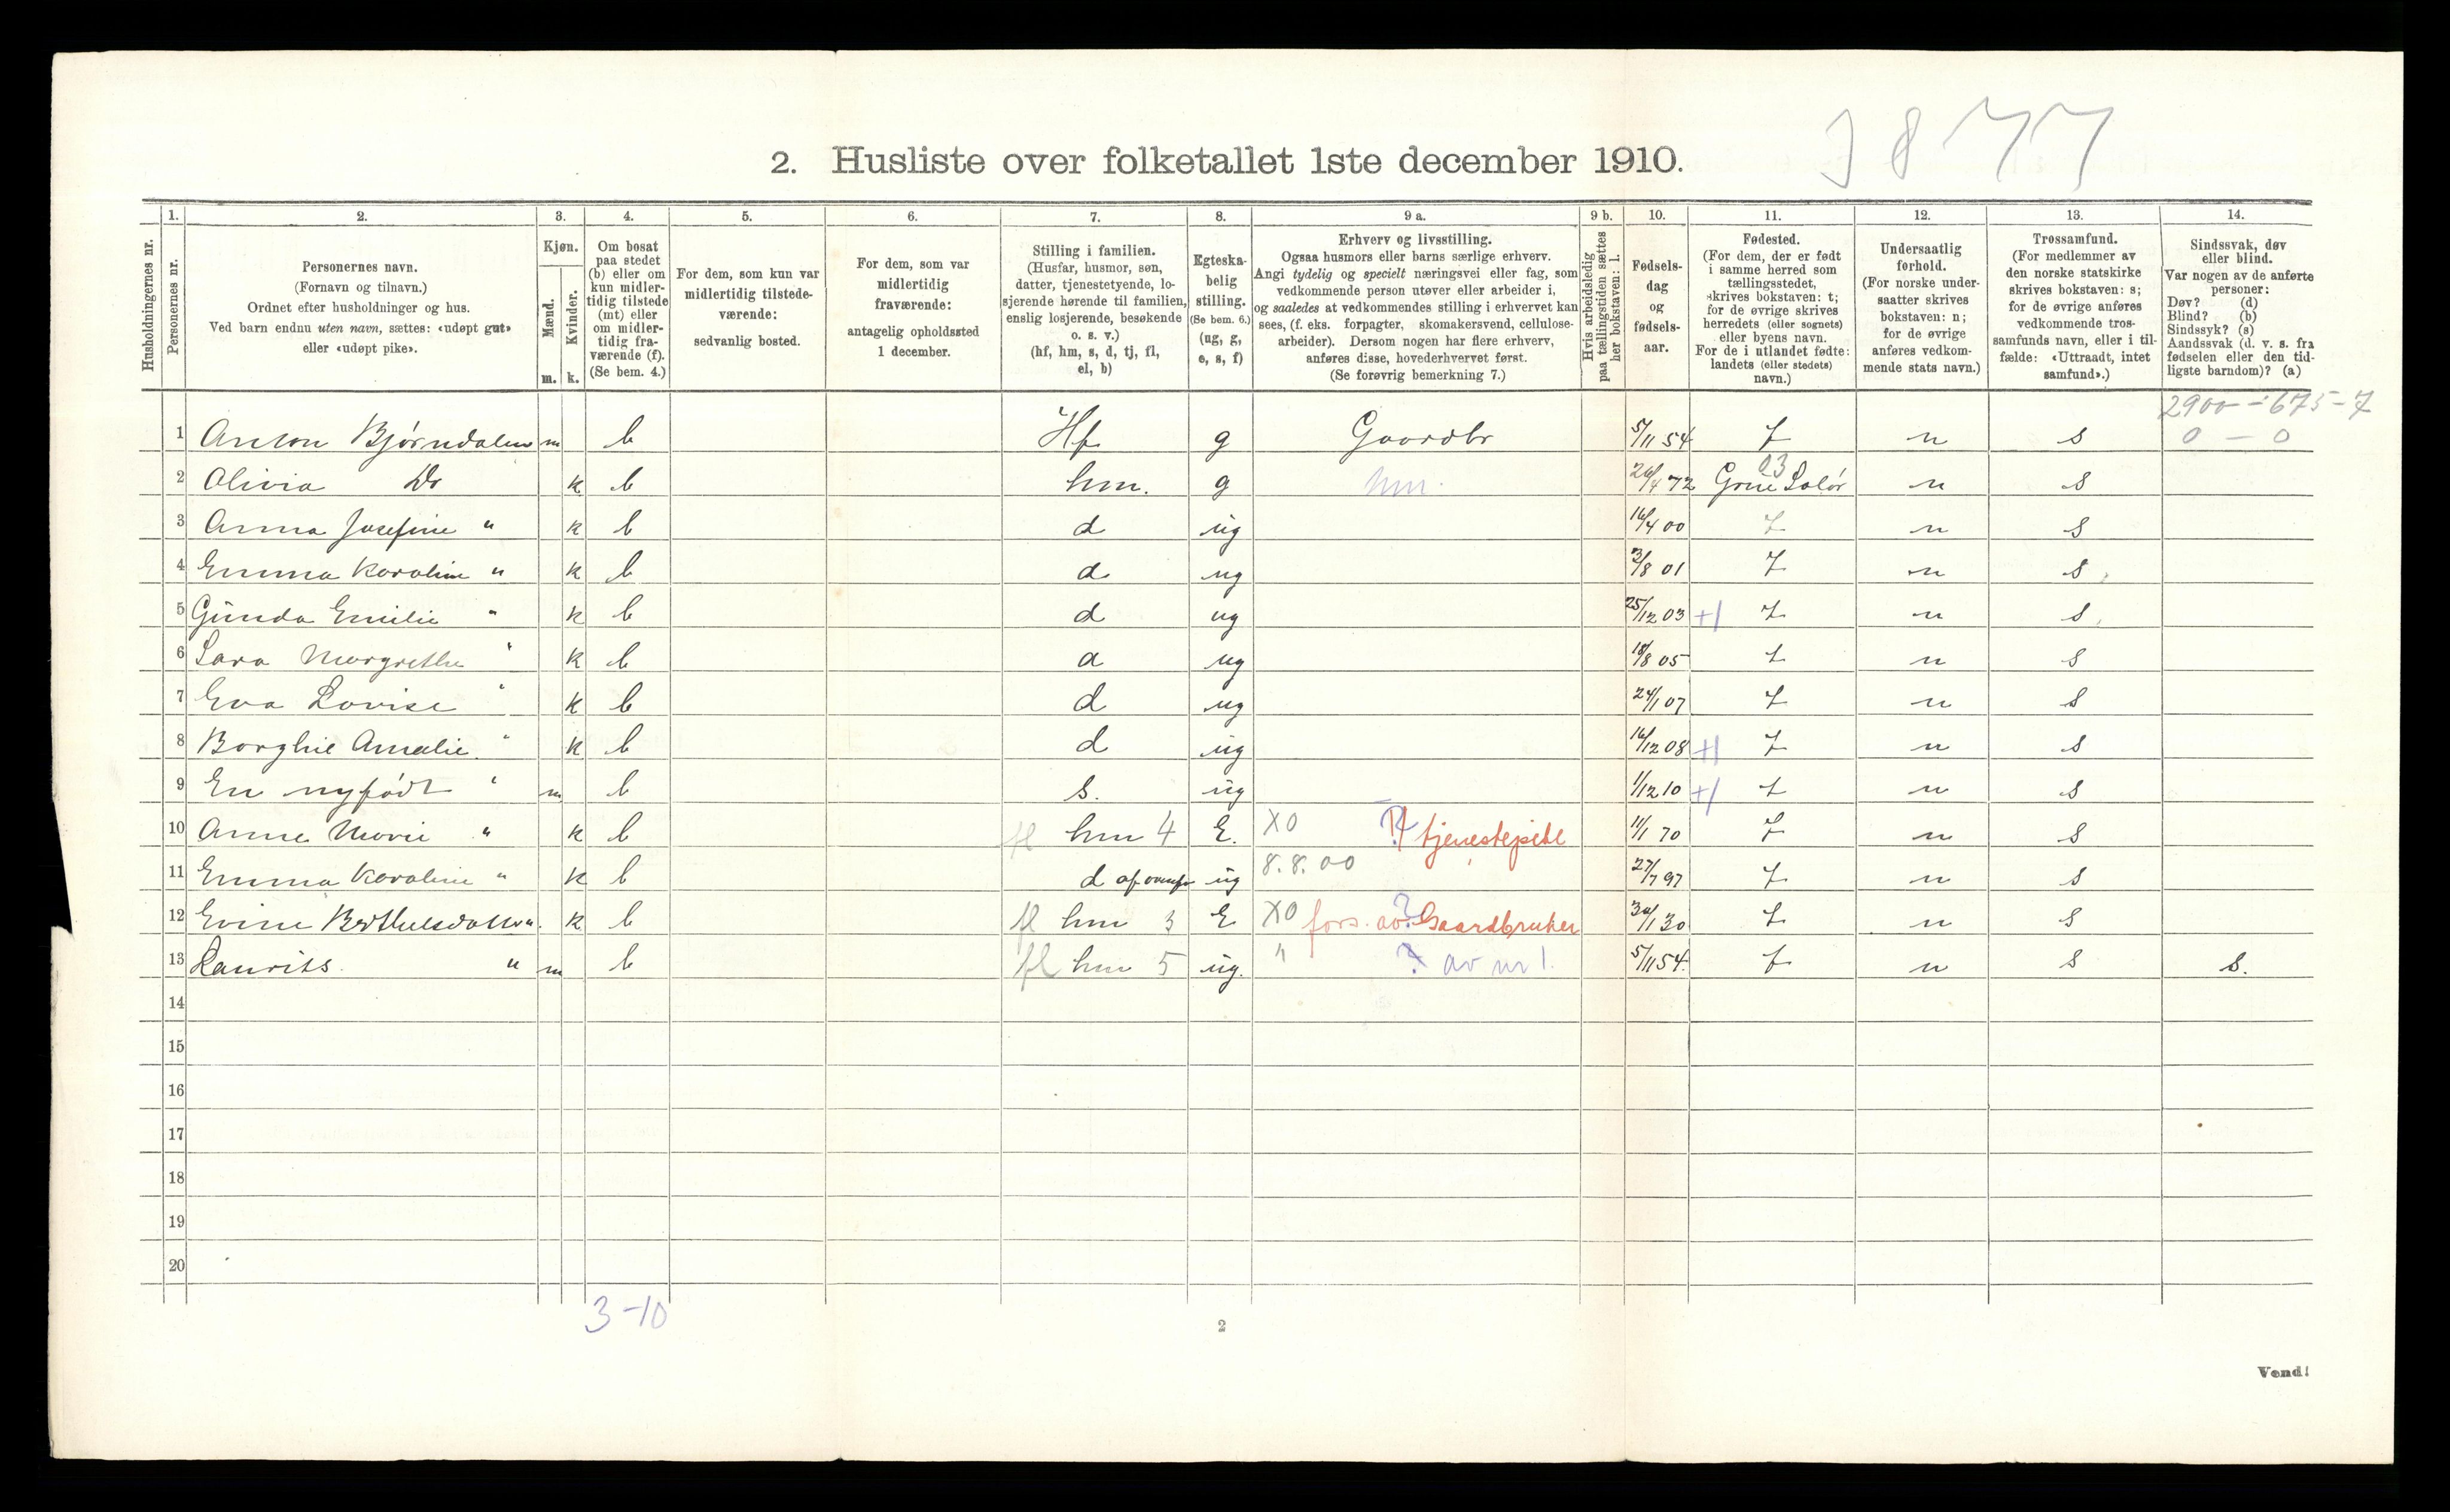 3877
2. Husliste over folketallet 1ste december 1910.
Husholdningernes nr.
1. Personernes nr.
2. Personernes navn.
(Fornavn og tilnavn.)
Ordnet efter husholdninger og hus.
Ved barn endnu uten navn, sættes: «udøpt gut»
eller «udøpt pike».
3. Kjøn.
Mænd. m.
Kvinder. k.
4. Om bosat
paa stedet
(b) eller om
kun midler-
tidig tilstede
(mt) eller
om midler-
tidig fra-
værende (f).
(Se bem. 4.)
5. For dem, som kun var
midlertidig tilstede-
værende:
sedvanlig bosted.
6. For dem, som var
midlertidig
fraværende:
antagelig opholdssted
1 december.
7. Stilling i familien.
(Husfar, husmor, søn,
datter, tjenestetyende, lo-
sjerende hørende til familien,
enslig losjerende, besøkende
o. s. v.)
(hf, hm, s, d, tj, fl,
el, b)
8. Egteska-
belig
stilling.
(Se bem. 6.)
(ug, g,
e, s, f)
9 a. Erhverv og livsstilling.
Ogsaa husmors eller barns særlige erhverv.
Angi tydelig og specielt næringsvei eller fag, som
vedkommende person utøver eller arbeider i,
og saaledes at vedkommendes stilling i erhvervet kan
sees, (f. eks. forpagter, skomakersvend, cellulose-
arbeider). Dersom nogen har flere erhverv,
anføres disse, hovederhvervet først.
(Se forøvrig bemerkning 7.)
9 b. Hvis arbeidsledig
paa tællingstiden sættes
her bokstaven: l.
10. Fødsels-
dag
og
fødsels-
aar.
11. Fødested.
(For dem, der er født
i samme herred som
tællingsstedet,
skrives bokstaven: t;
for de øvrige skrives
herredets (eller sognets)
eller byens navn.
For de i utlandet fødte:
landets (eller stedets)
navn.)
12. Undersaatlig
forhold.
(For norske under-
saatter skrives
bokstaven: n;
for de øvrige
anføres vedkom-
mende stats navn.)
13. Trossamfund.
(For medlemmer av
den norske statskirke
skrives bokstaven: s;
for de øvrige anføres
vedkommende tros-
samfunds navn, eller i til-
fælde: «Uttraadt, intet
samfund».)
14. Sindssvak, døv
eller blind.
Var nogen av de anførte
personer:
Døv? (d)
Blind? (b)
Sindssyk? (s)
Aandssvak (d. v. s. fra
fødselen eller den tid-
ligste barndom)? (a)
2900-675-7
1 Anton Bjørndalen m b Hf g Gaardbr 5/11 54 t n s 0 - 0
2 Olivia Do k b hm. g hm. 26/4 72 Grue Solør 03 n s
3 Anna Josefine " k b d ug 16/4 00 t n s
4 Emma Karoline " k b d ug 3/8 01 t n s
5 Gunda Emilie " k b d ug 25/12 03 t n s
6 Sara Margrethe " k b d ug 18/8 05 t n s
7 Eva Lovise " k b d ug 24/1 07 t n s
8 Borghil Amalie " k b d ug 16/12 08 t n s
9 En nyfødt " m b s. ug 1/12 10 t n s
10 Anne Marie " k b fl hm 4 E. X0 tjenestepike 11/1 70 t n s
11 Emma Karoline " k b d af ug 8.8.00 27/7 97 t n s
12 Evine Berthelsdatter k b fl hm 3 E X0 fors. av Gaardbruker 30/1 30 t n s
13 Laurits " m b fl hm 5 ug. " ? av nr 1. 5/11 54. t n s s.
14
15
16
17
18
19
20
3-10
2
Vend!